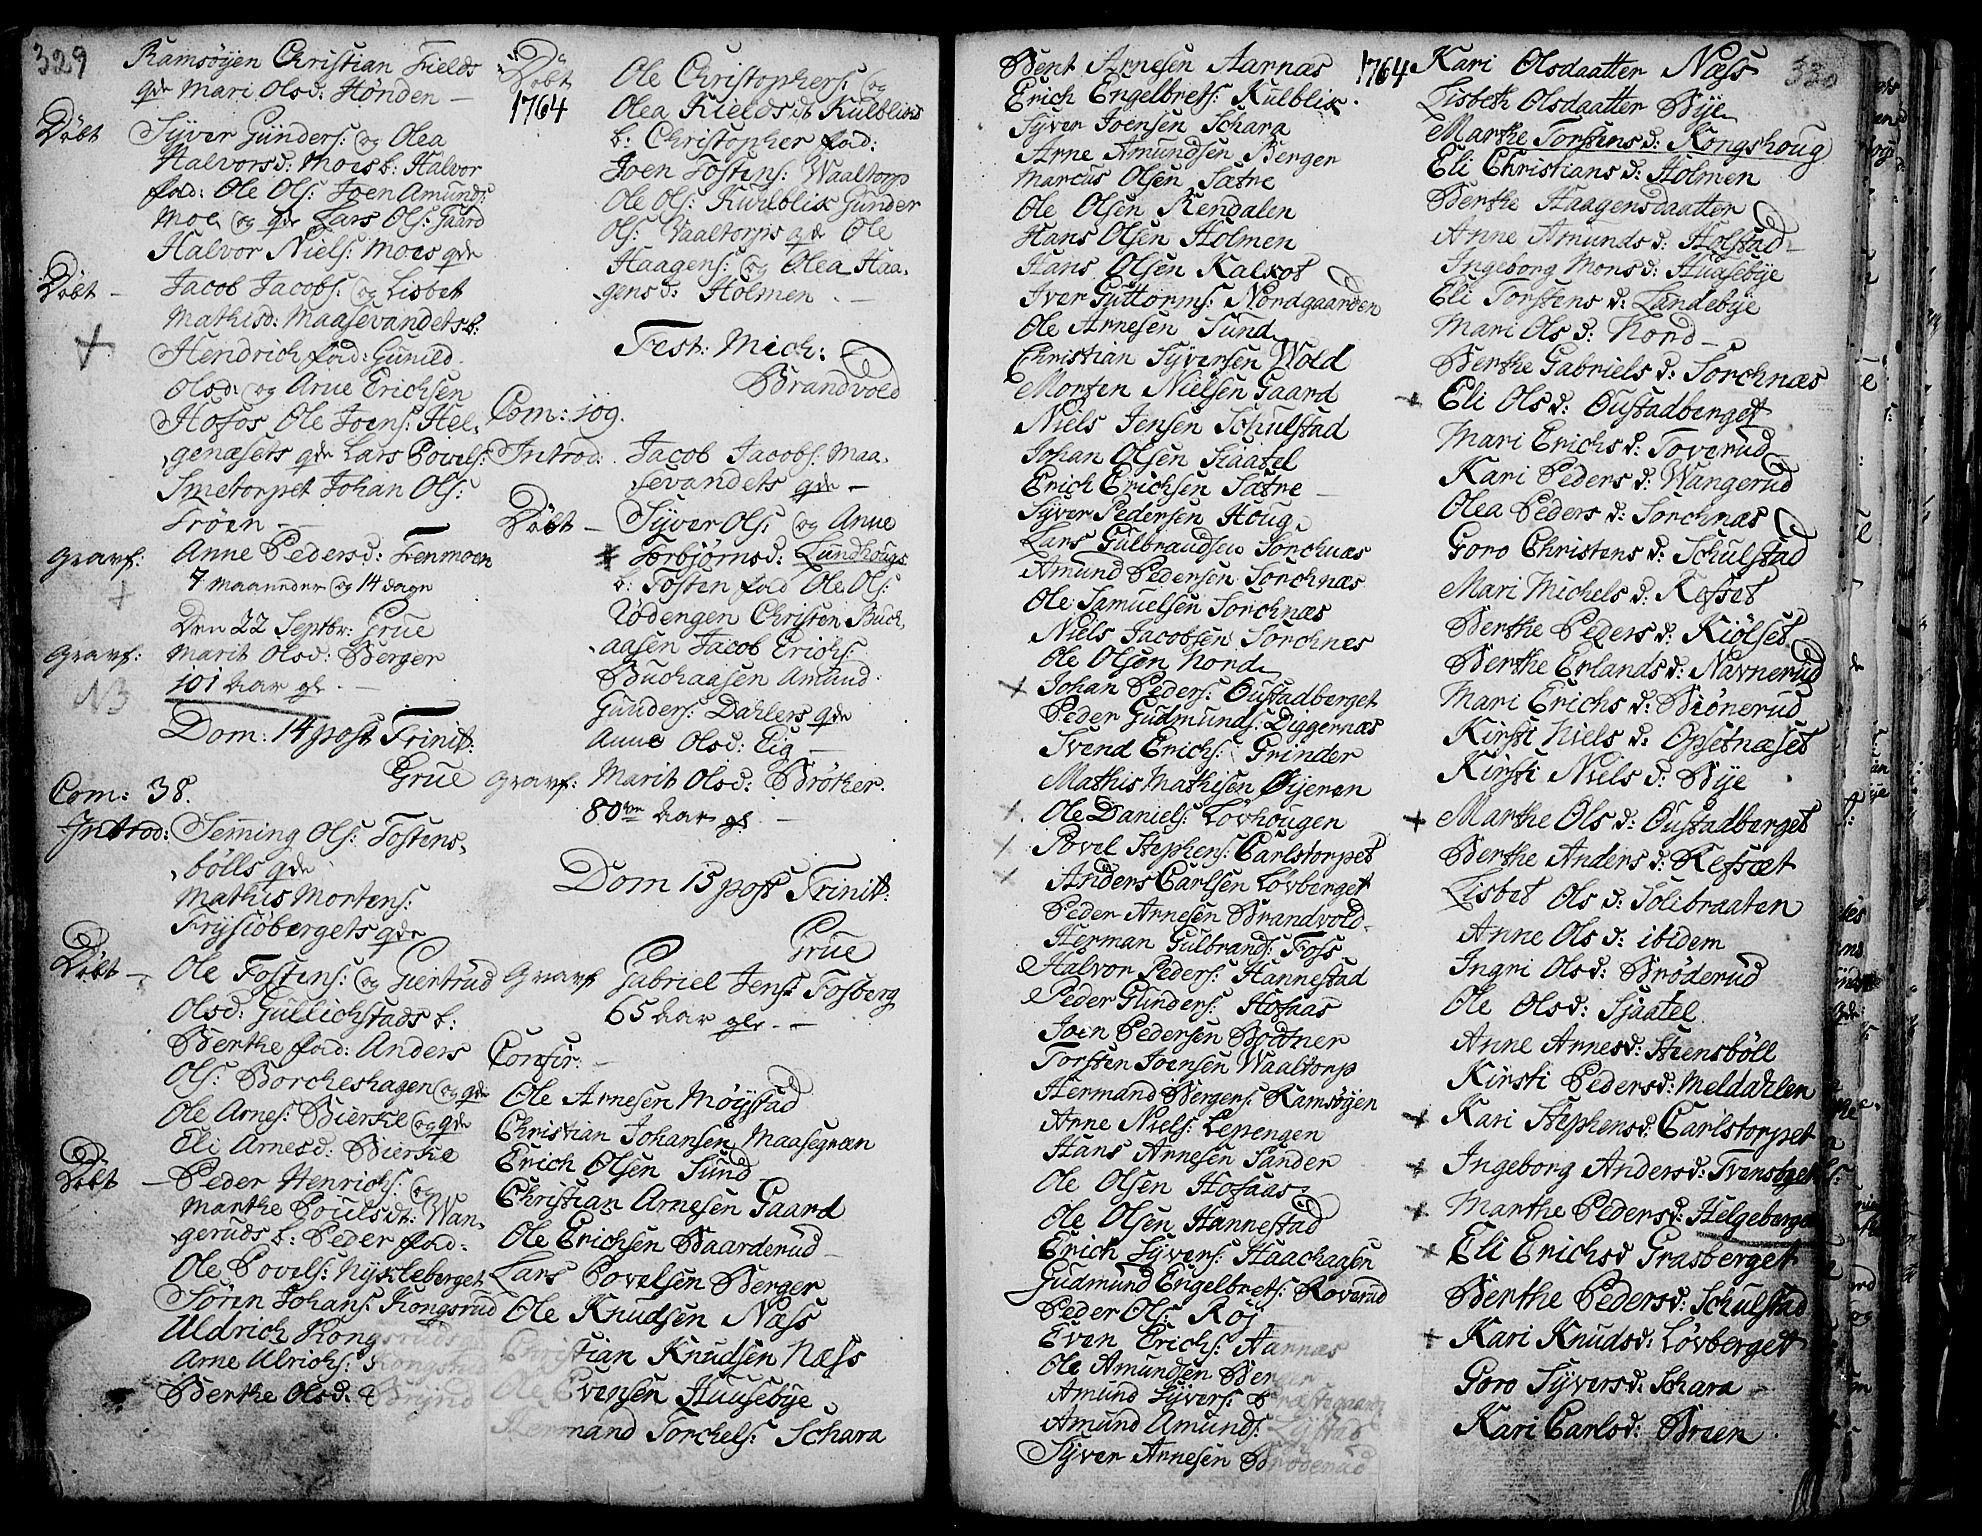 329
Ramsøyen Christian Fields
gde Mari Olsd: Honden —
Døbt Syver Gunders: og Olea
Halvorsd: Moes b: Halvor
fad: Ole Ols: Joen Amunds:
Moe og gde Lars Ols: Gaard
Halvor Niels: Moes gde
Døbt — Jacob Jacobs: og Lisbet
Mathisd: Maasevandets b:
Hendrich fad: Gunild
Olsd: og Arne Erichsen
Hofos Ole Joens: Hel,
genæsets gde Lars Povels:
Smetorpet Johan Ols:
Trøen —
Gravf: Anne Pedersd: Tenmoen
7 maaneder og 14 dage
Den 22 Septbr: Grue
Gravf: Marit Olsd: Berger
NB 101 Aar gl. —
Dom: 14 post Trinit:
Grue
Com: 38.
Introd: Seming Ols: Tostens,
bølls gde
Mathis Mortens:
Frysiøbergets gde
Døbt — Ole Tostens: og Giertrud
Olsd: Gullichstads b:
Berthe fad: Anders
Ols: Borcheshagen og gde
Ole Arnes: Bierke og gde
Eli Arnesd: Bierke
Døbt — Peder Henrichs: og
Marthe Poulsdt: Wan,
geruds b: Peder fad:
Ole Povels: Nyxleberget
Søren Johans: Kongsrud
Uldrich Kongsruds
Arne Ulrichs: Kongsrud
Berthe Olsd:
Døbt
1764
Ole Christophers: og
Olea Kieldsdt Kulblixs
b: Christopher fad:
Joen Tostens: Waaltorp
Ole Ols: Kuhlblix Gunder
Ols: Vaaltorps gde Ole
Haagens: og Olea Haa,
gensd: Holmen —
Fest: Mich:
Brandvold
Com: 109.
Introd: Jacob Jacobs: Maa,
sevandets gde —
Døbt — Syver Ols: og Anne
Torbjørnsd: Lundhougs
b: Tosten fad Ole Ols:
Rødengen Christen Buch,
aasen Jacob Erichs:
Buchaasen Amund
Gunders: Dahlers gde
Anne Olsd: Lig —
Gravf: Marit Olsd: Brøther.
80 Aar gl —
Dom 15 post Trinit:
Grue
Gravf Gabriel Jens: Fosberg
65 Aar gl. —
Confir: —
Ole Arnesen Møystad
Christian Johansen Maasegræn
Erich Olsen Sund
Christian Arnesen Gaard
Ole Erichsen Baarderud
Lars Povelsen Berger
Ole Knudsen Næss
Christian Knudsen Næss
Ole Evensen Huusebye
Hermand Torchels: Schara
Bent Arnesen Aarnæs
Erich Engelbrets: Kulblix.
Syver Joensen Schara
Arne Amundsen Bergen
Marcus Olsen Sætre
Ole Olsen Rendalen
Hans Olsen Holmen
Hans Olsen Kalkot
Iver Guttorms: Nordgaarden
Ole Arnesen Sund
Christian Syversen Wold
Morten Nielsen Gaard
Niels Jensen Schulstad
Johan Olsen Siaatel
Erich Erichsen Sætre
Syver Pedersen Houg
Lars Gulbrandsen Torchnæs
Amund Pedersen Torchnæs
Ole Samuelsen Torchnæs
Niels Jacobsen Torchnæs
Ole Olsen Nord
Johan Peders: Oustadberget
Peder Gudmunds: Diggernæs
Svend Erichs: Grinder
Mathis Mathisen Øijeren
Ole Daniels: Løvhougen
Povel Stephens: Carlstorpet
Anders Carlsen Løvberget
Peder Arnesen Brandvold
Herman Gulbrands: Foss
Halvor Peders: Hannestad
Peder Gunders: Hofaas
Joen Pedersen Bottner
Torsten Joensen Waaltorp
Hermand Bergers: Ramsøyen
Anne Niels: Lepengen
Hans Arnesen Sander
Ole Olsen Hofaas
Ole Olsen Hannestad
Erich Syvers: Haachaasen
Gudmund Engelbrets: Roverud
Peder Ols: Roj
Even Erichs: Aarnæs
Ole Amundsen Berger
Amund Syvers: Præstegaard
Amund Amunds: Lystad
Syver Arnesen Brøderud
330
1764
Kari Olsdaatter Næss
Lisbeth Olsdaatter Bye
Marthe Torstensd: Kongshoug
Eli Christiansd: Holmen
Berthe Haagensdaatter
Anne Amundsd: Holstad
Ingeborg Monsd: Huusebye
Eli Torstensd: Landebye
Mari Olsd: Nord
Berthe Gabrielsd: Torchnæs
Eli Olsd: Oustadberget
Mari Erichsd: Toverud
Kari Pedersd: Wangerud
Olea Pedersd: Torchnæs
Goro Christensd: Schulstad
Mari Michelsd: Refset
Berthe Pedersd: Kiølset
Berthe Erlandsd: Navnerud
Mari Erichsd: Biønerud
Kirsti Nielsd: Opsetnæset
Kirsti Nielsd: Bye
Marthe Olsd: Oustadberget
Berthe Andersd: Refsæt
Lisbet Olsd: Solibraaten
Anne Olsd: ibidem
Ingri Olsd: Brøderud
Ole Olsd: Sjaatel
Anne Arnesd: Steensbøll
Kirsti Pedersd: Meldahlen
Kari Stephensd: Carlstorpet
Ingeborg Andersd: Tvengberget
Marthe Pedersd: Helgeberget
Eli Erichsd Grasberget
Berthe Pedersd: Schulstad
Kari Knudsd: Løvberget
Goro Syversd: Schara
Kari Carlsd: Breen